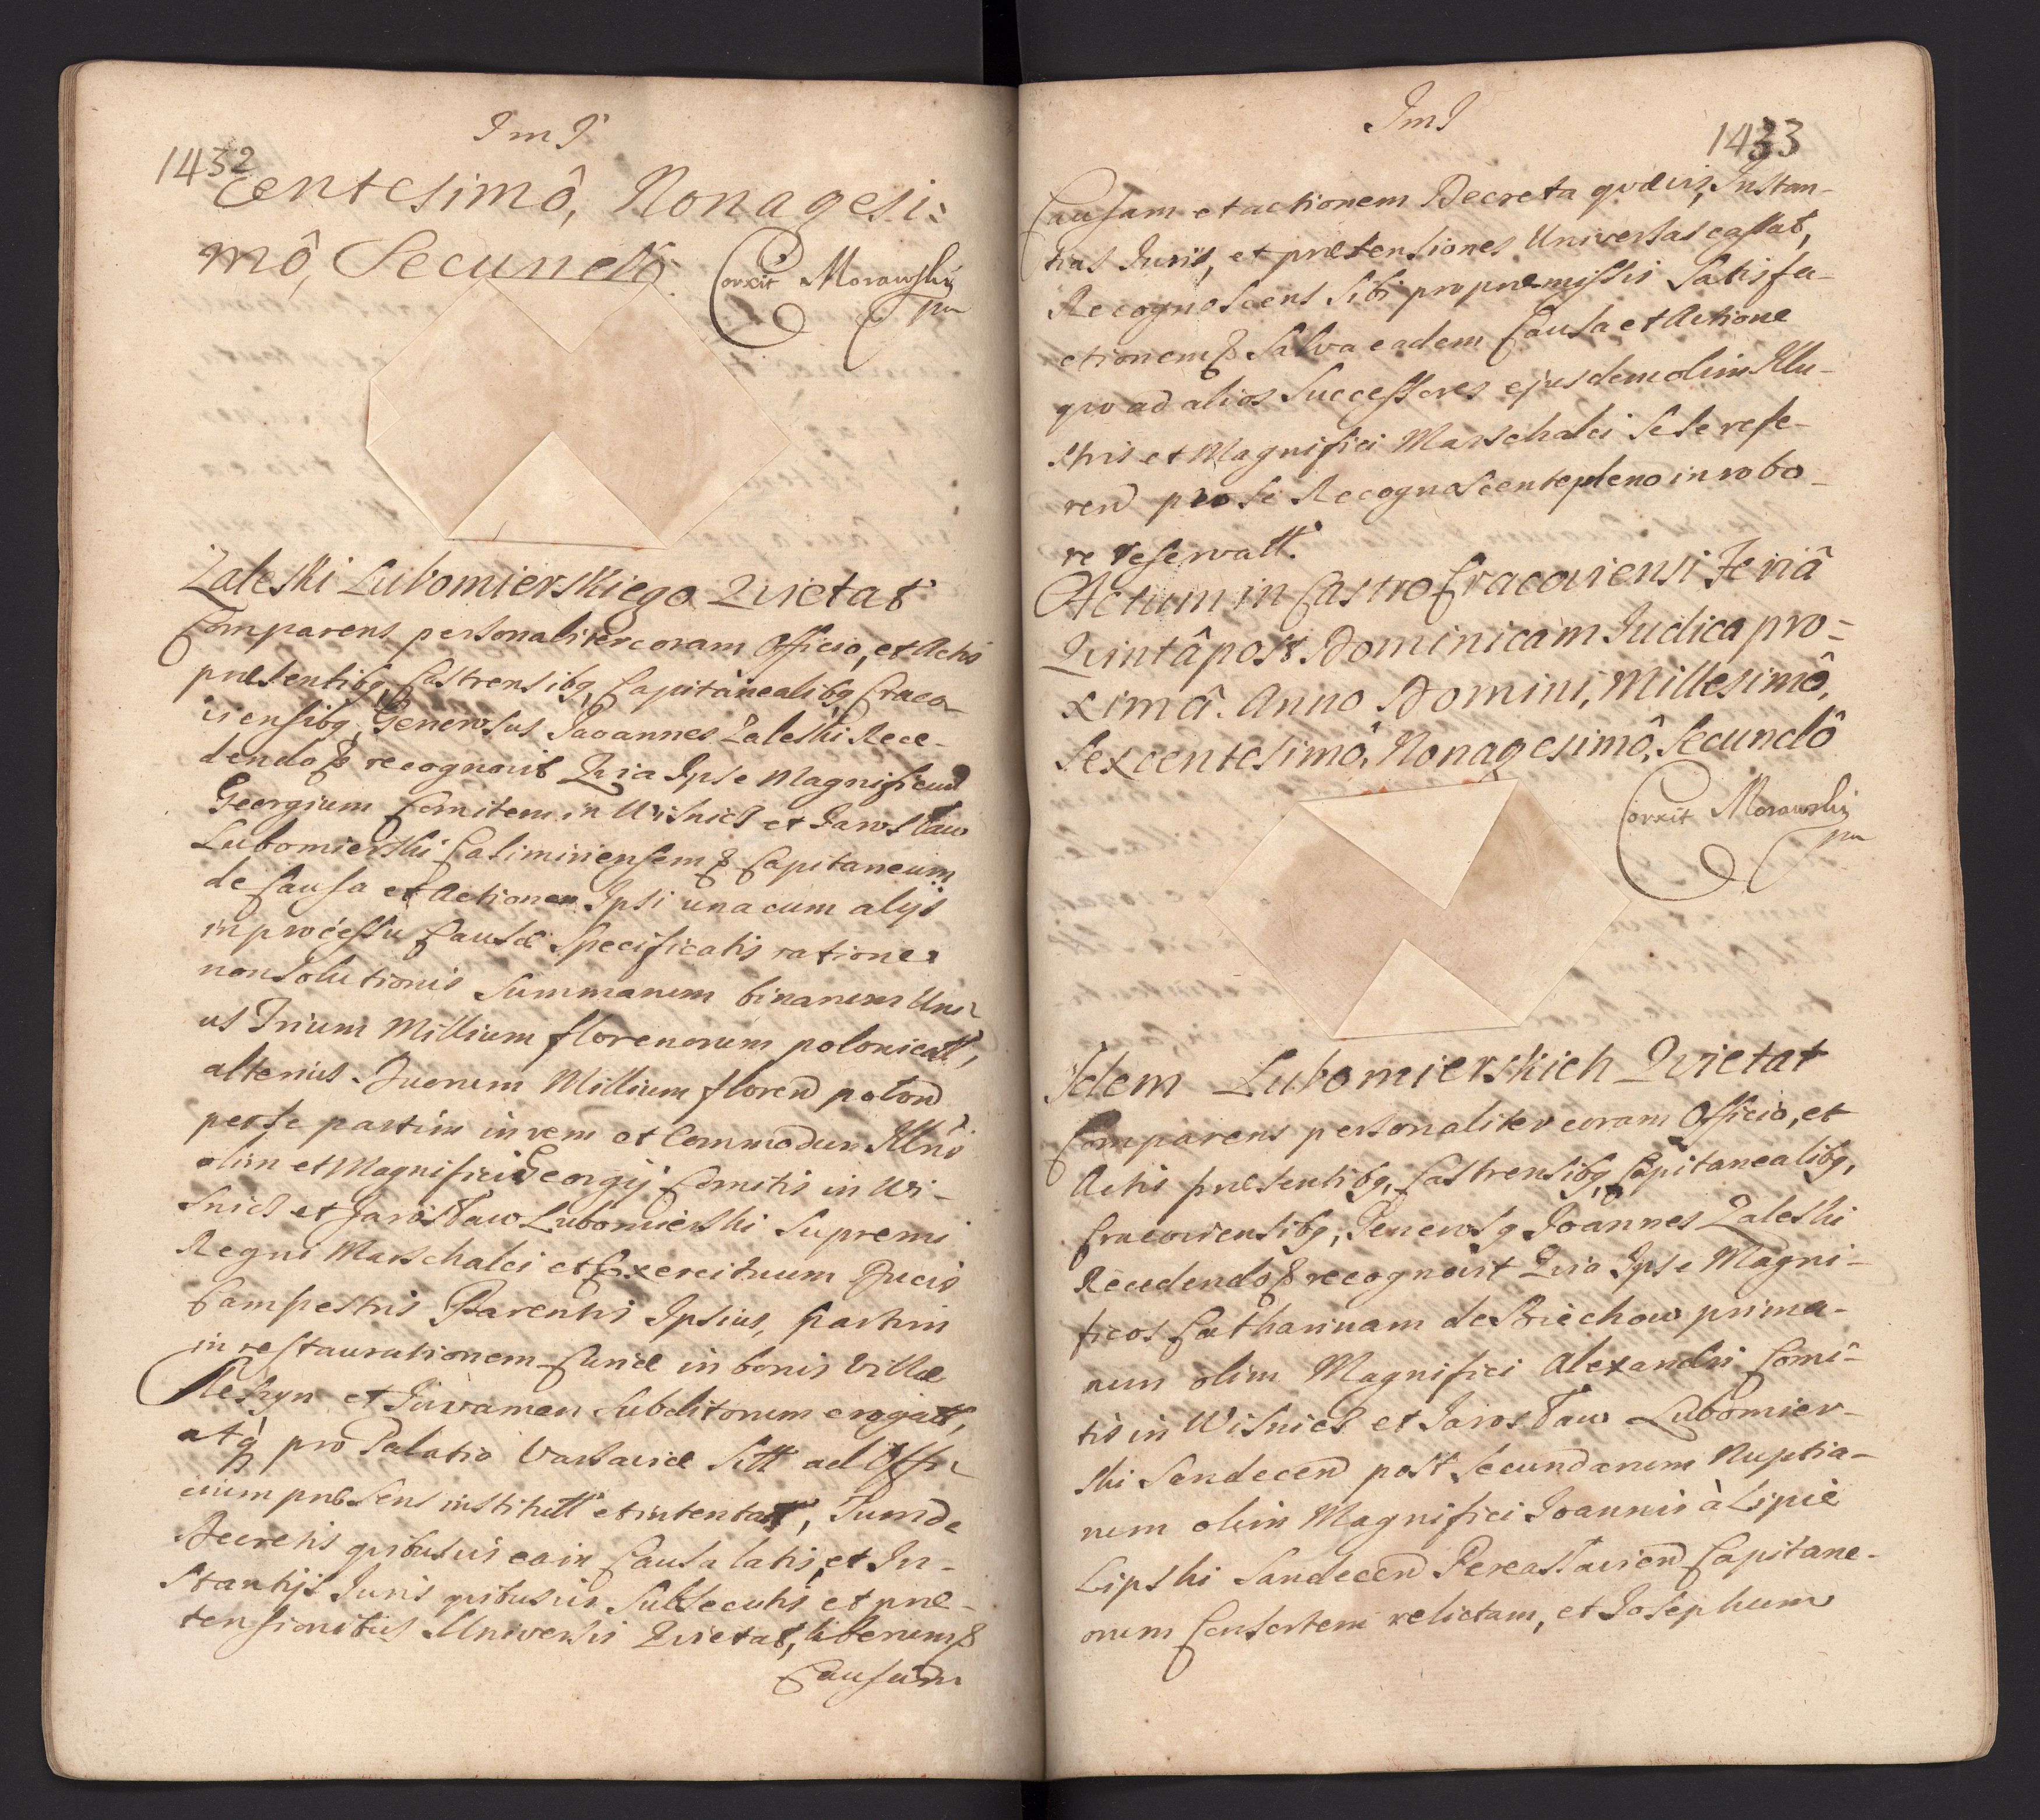 ImI
1432
centesimô, Nonagesi:
mô, Secundô.
Correxit Morawsky
pm
Zaleski Lubomierskiego Qvietat
Comparens personaliter coram Officio, et Actis
præsentibg Castrensibg Capitanealibg Craco-
viensibg, Generosus Jaoannes Zaleski Rece-
dendo & recognovit Qvia Ipse Magnificum
Georgium Comitem in Wisnicz et Jarosław
Lubomierski Casimiriensem & Capitaneum
de Causa et Actione Ipsi una cum alÿs
in processu Causæ Specificatis ratione
non Solutionis Summarum binarum Uni-
us Trium Millium florenorum polonicall,
alterius Duorum Millium floren polon
per se partim in rem et Commodum Illris
olim et Magnifici Georgÿ Comitis in Wi-
snicz et Jarosław Lubomierski Supremi
Regni Marschalci et Exercituum Ducis
Campestris Parentis Ipsius, partim
in restaurationem Curiæ in bonis Villæ
et Juvamen Subditorum erogatt,
atq pro Palatio Varsaviæ Sitt ad Offi-
cium præsens institutt et intentatt, Tum de
Decretis qvibusvis ea in Causa latis, et In-
stantÿs Juris qvibusvis Subsecutis et præ-
tensionibus Universis Qvietat, liberum &
Causam
ImI
1433
Causam et actionem Decreta qvævis, Instan-
tias Juris, et prætensiones Universas cassat,
Recognoscens Sibi pro præmissis Satisfa-
ctionem & Salva eadem Causa et Actione
qvo ad alios Successores ejusdem olim Illu-
stris et Magnifici Marschalci Sese refe-
ren pro se Recognoscente pleno in robo-
re reservatt.
Actum in Castro Cracoviensi Feriâ
Qvintâ post Dominicam Judica pro-
ximâ. Anno Domini, Millesimô,
Sexcentesimô, Nonagesimô, Secundô
Correxit Morawsky
pm
Idem Lubomierskich Qvietat
Comparens personaliter coram Officio, et
Actis præsentibg, Castrensibg Capitanealibg,
Cracoviensibg, Generosg Joannes Zaleski
Recedendo & recognovit Qvia Ipse Magni-
ficos Catharinam de Briechow prima-
rum olim Magnifici Alexandri Comi-
tis in Wisnicz et Jarosław Lubomier-
ski Sandecen post Secundarum Nuptia-
rum olim Magnifici Joannis à Lipie
Lipski Sandecen Pereasłavien Capitane-
orum Consortem relictam, et Josephum